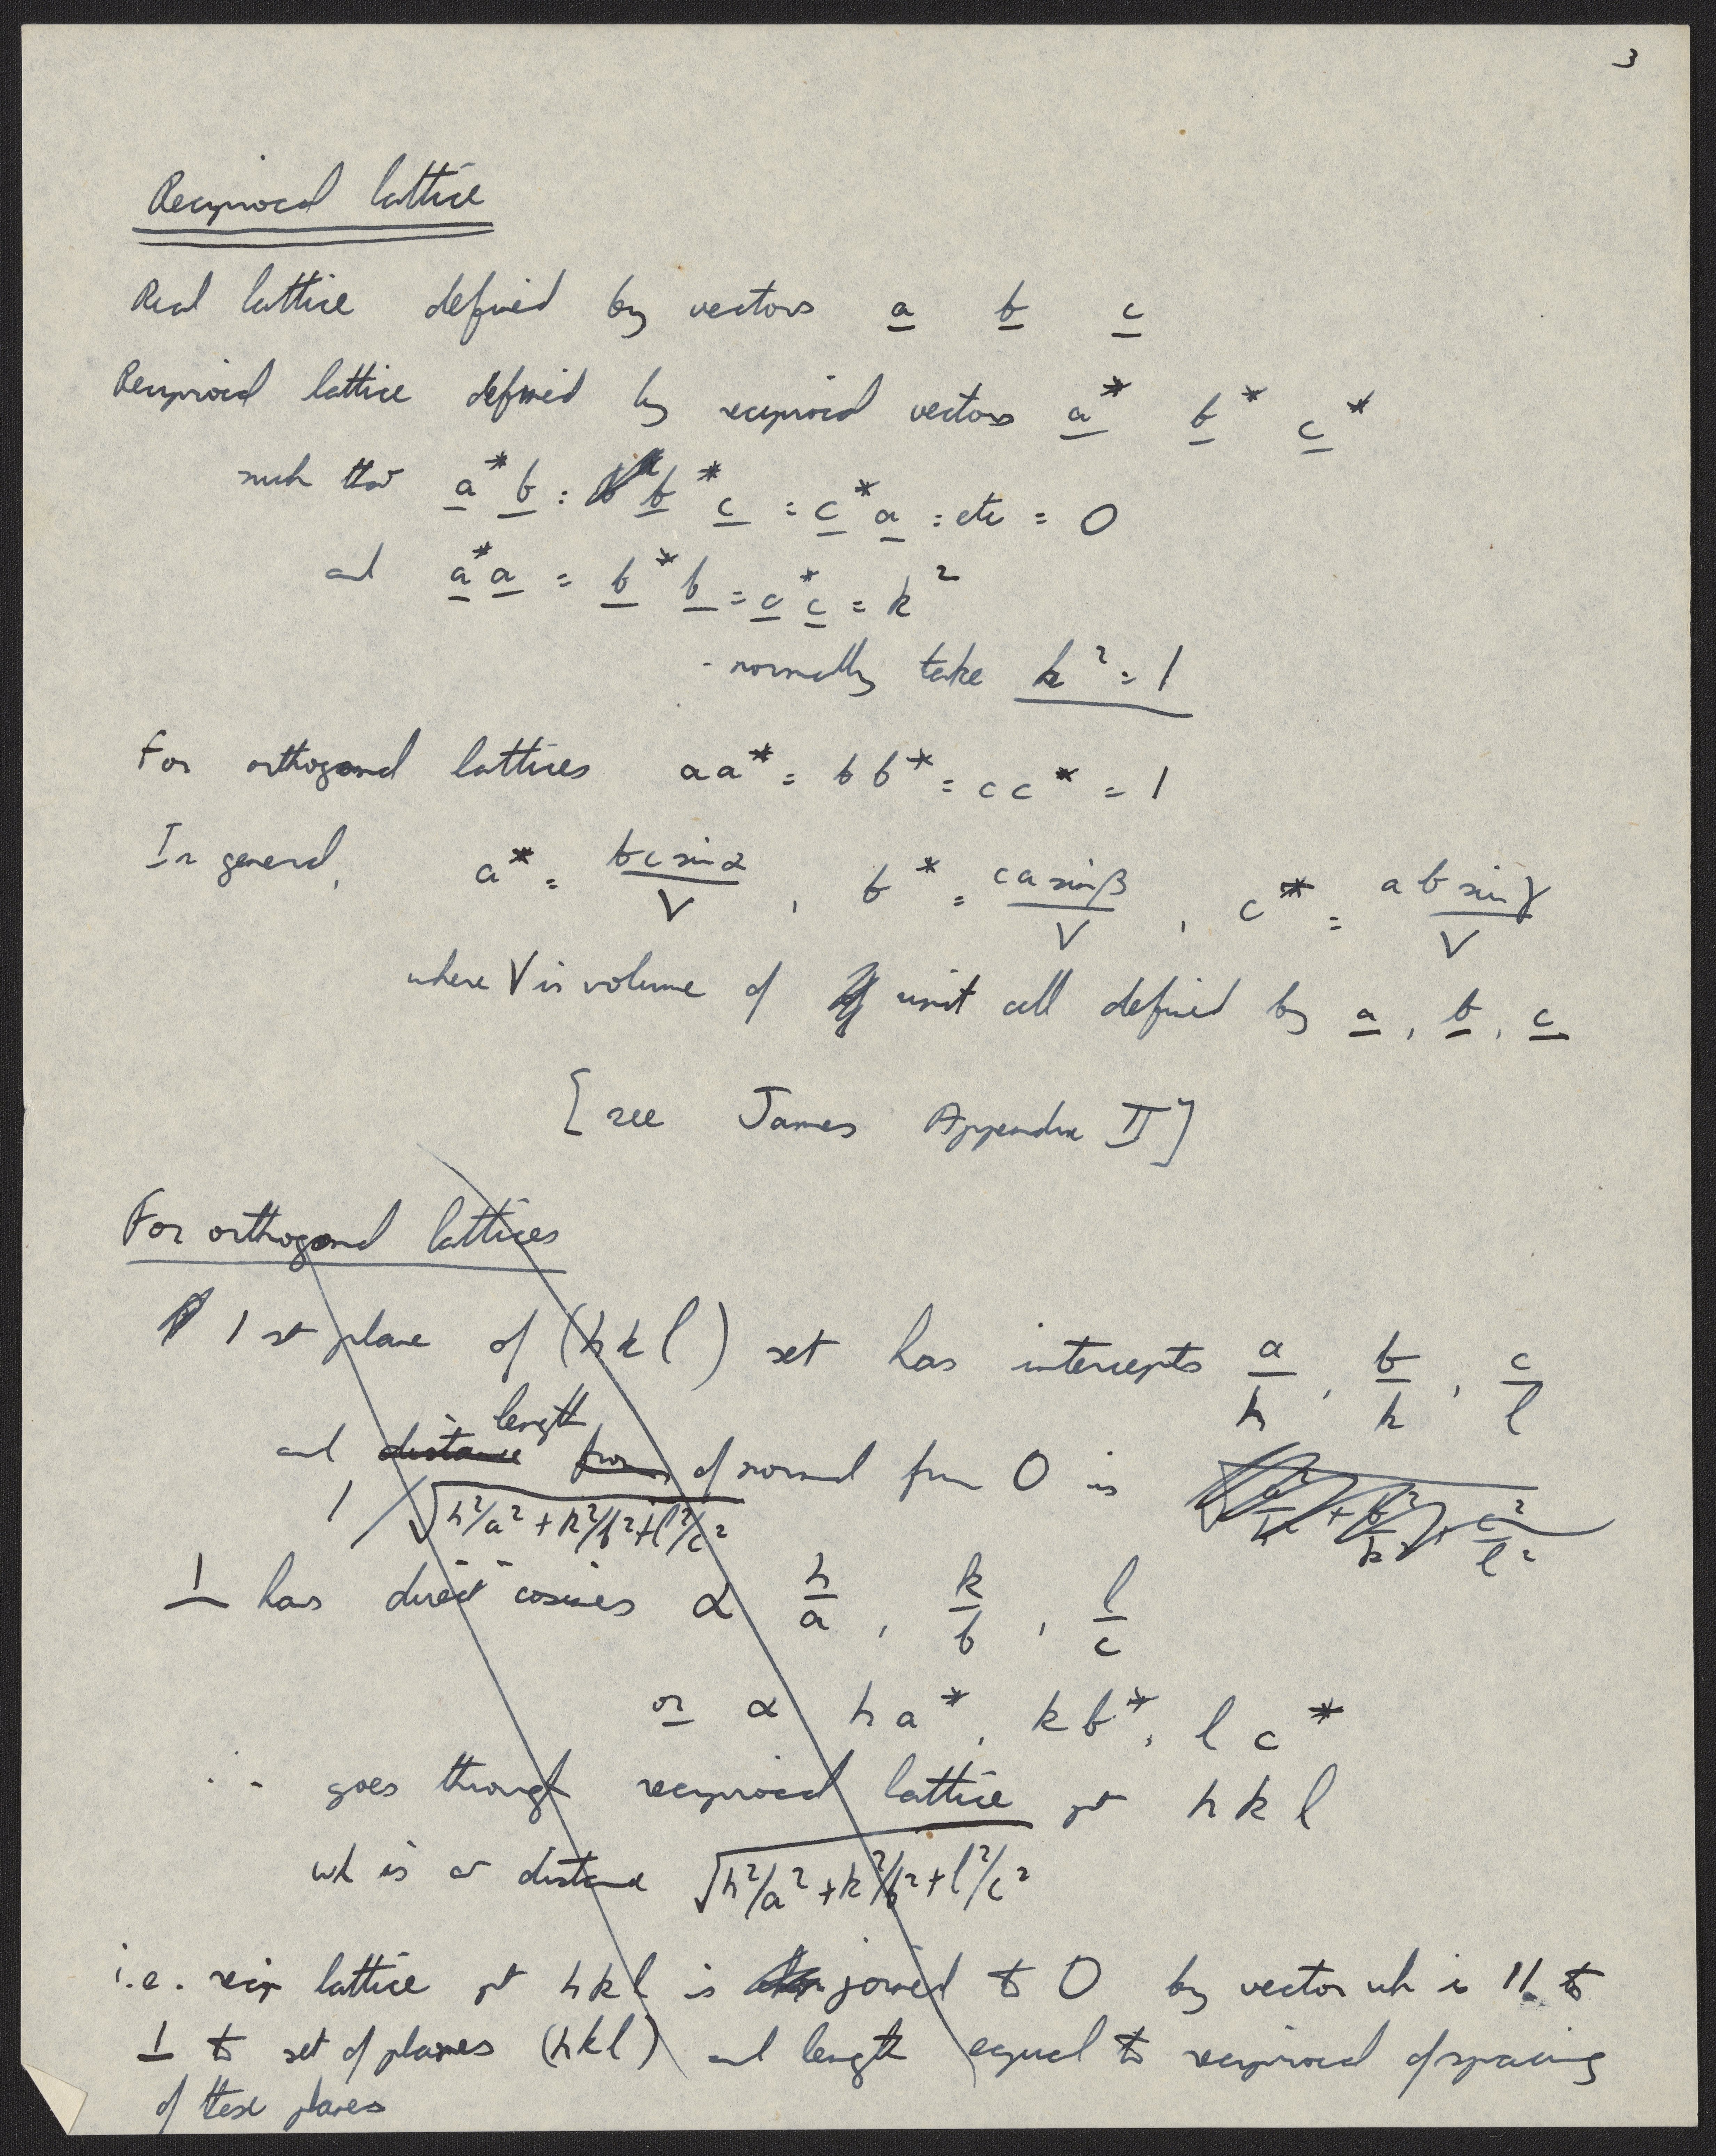 3
Reciprocal lattice
Real lattice defined by vectors a b c
Reciprocal lattice defined by reciprocal vectors a* b* c*
such that a* b = b* c = c* a = etc = 0
and a* a = b* b = c* c = k²
- normally take k² = 1
For orthogonal lattices aa* = bb* = cc* = 1
In general, a* = bc sin α / V , b* = ca sin β / V , c* = ab sin γ / V
where V is volume of unit cell defined by a, b, c
[see James Appendix II]
For orthogonal lattices
1st plane of (hkl) set has intercepts a/h , b/k , c/l
length
and distance from of normal from O is √ a²/h² + b²/k² + c²/l²
1 / √h²/a² + k²/b² + l²/c²
⊥ has direct cosines ∝ h/a , k/b , l/c
or ∝ ha*, kb*, lc*
∴ goes through reciprocal lattice pt hkl
wh is at distance √h²/a² + k²/b² + l²/c²
i.e. recip lattice pt hkl is joined to O by vector wh is // to
⊥ to set of planes (hkl) and length equal to reciprocal of spacing
of these planes